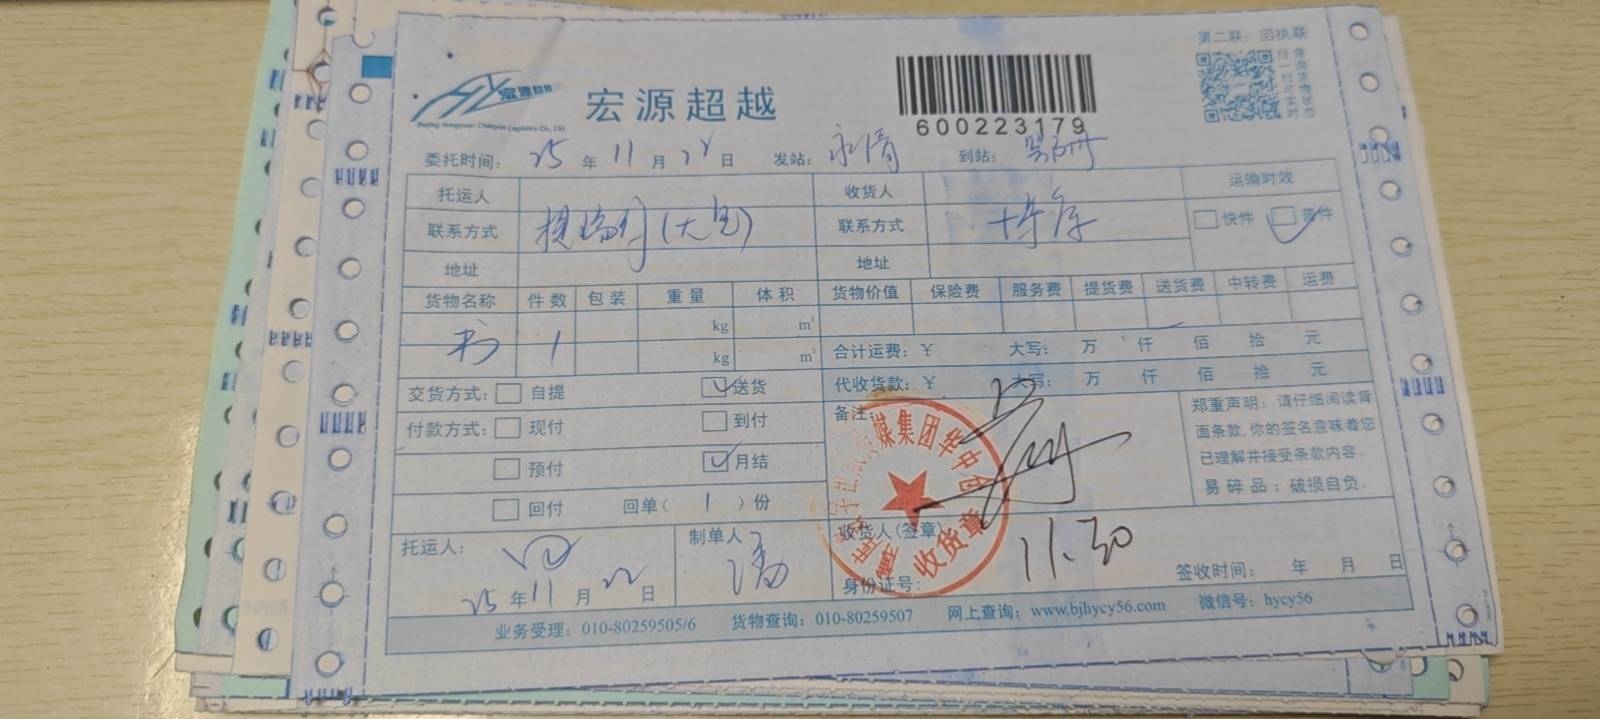 第二联：回执联
扫一扫可查询货物实时状态
宏源超越
Beijing Hongyuan Chaoyue Logistics Co., Ltd.
宏源超越
600223179
委托时间： 25 年 11 月 22 日 发站： 永清 到站：
托运人 收货人 运输时效
联系方式 (大包) 联系方式 博库 快件 普件
地址 地址
货物名称 件数 包装 重量 体积 货物价值 保险费 服务费 提货费 送货费 中转费 运费
书 1 kg m³
kg m³
合计运费：￥ 大写： 万 仟 佰 拾 元
交货方式： 自提 送货
代收货款：￥ 大写： 万 仟 佰 拾 元
付款方式： 现付 到付
预付 月结
回付 回单（ 1 ）份
备注：
郑重声明：请仔细阅读背
面条款，你的签名意味着您
已理解并接受条款内容。
易碎品：破损自负。
媒集团华中
收货章
托运人：
25 年 11 月 22 日
制单人
潘
收货人(签章)
11.30
身份证号：
签收时间： 年 月 日
业务受理：010-80259505/6 货物查询：010-80259507 网上查询：www.bjhycy56.com 微信号：hycy56